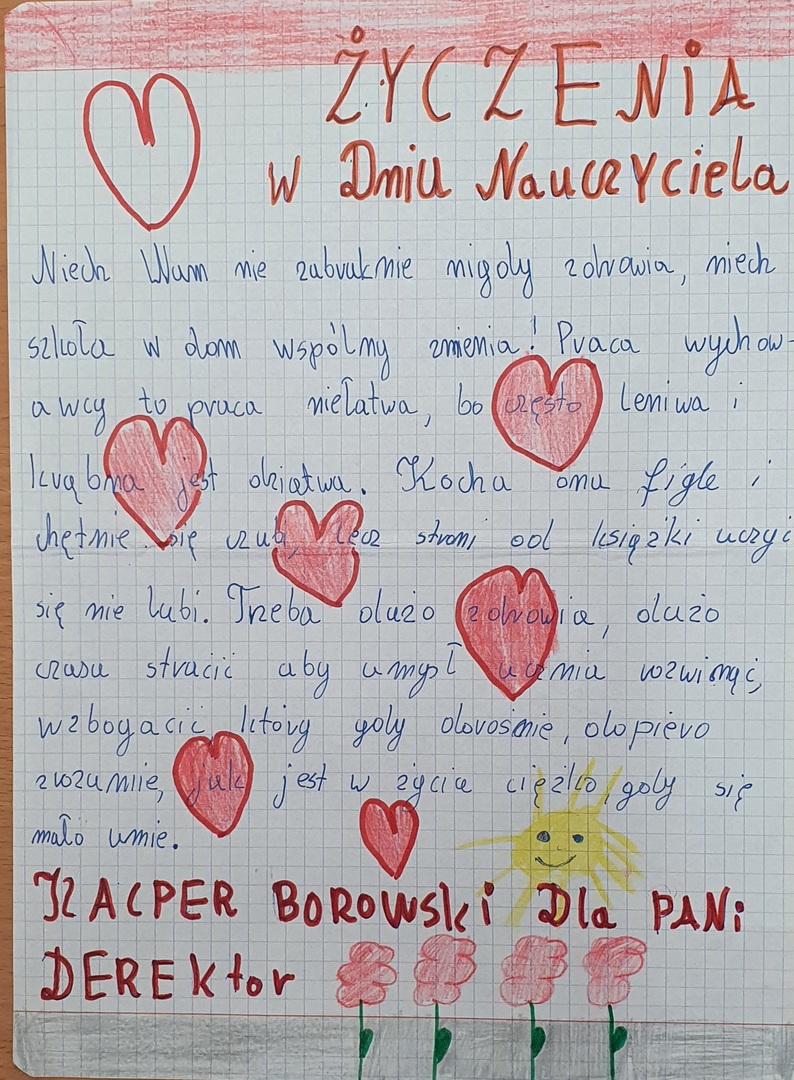 ŻYCZENIA
w Dniu Nauczyciela
Niech Wam nie zabraknie nigdy zdrowia, niech
szkoła w dom wspólny zmienia! Praca wychow-
awcy to praca niełatwa, bo często leniwa i
krąbna jest dziatwa. Kocha ona figle i
chętnie się czubi, lecz stroni od książki uczyć
się nie lubi. Trzeba dużo zdrowia, dużo
czasu stracić aby umysł ucznia rozwinąć,
wzbogacić który gdy dorośnie, dopiero
zrozumie, jak jest w życiu ciężko, gdy się
mało umie.
KACPER BOROWSKI Dla PANi
DEREKtor